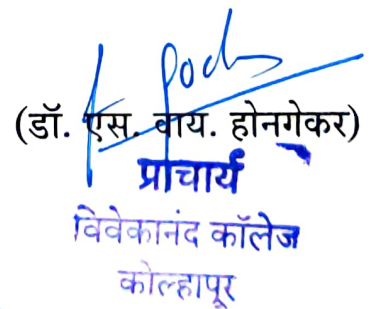 (डॉ. एस. वाय. होनगेकर)
प्राचार्य
विवेकानंद कॉलेज
कोल्हापूर